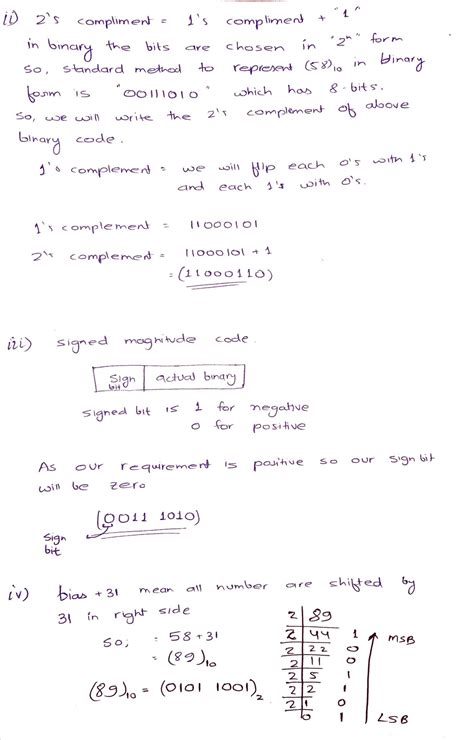 ii) 2's compliment = 1's compliment + "1"
in binary the bits are chosen in "2ⁿ" form
So, standard method to represent (58)₁₀ in binary
form is "00111010" which has 8-bits.
So, we will write the 2's complement of above
binary code.
1's complement = we will flip each 0's with 1's
and each 1's with 0's.
1's complement = 11000101
2's complement = 11000101 + 1
= (11000110)
iii) signed magnitude code.
Sign bit | actual binary
signed bit is 1 for negative
0 for positive
As our requirement is positive so our sign bit
will be zero
(0011 1010)
Sign
bit
iv) bias +31 mean all number are shifted by
31 in right side
so; = 58+31
= (89)₁₀
(89)₁₀ = (0101 1001)₂
2 | 89
2 | 44 1 MSB
2 | 22 0
2 | 11 0
2 | 5 1
2 | 2 1
2 | 1 0
0 1 LSB